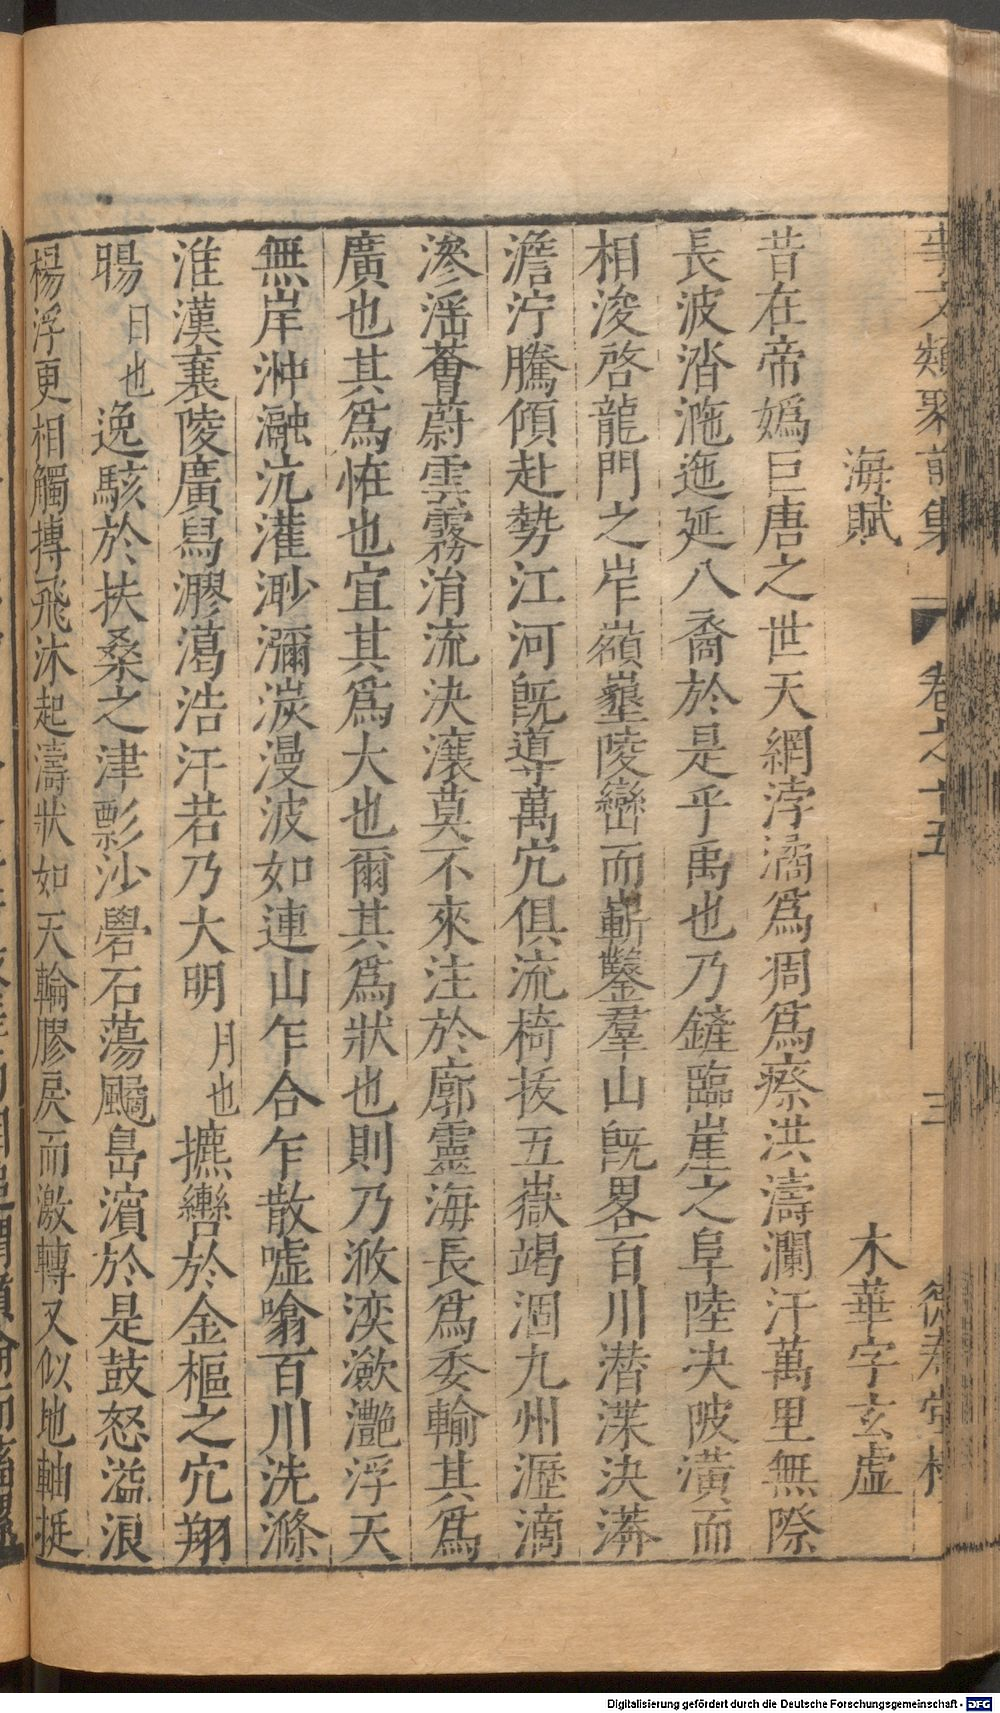 事文類聚前集 卷之十五 三 德壽堂梓
海賦 木華字玄虛
昔在帝嬀巨唐之世天網浡潏爲凋爲瘵洪濤瀾汗萬里無際
長波涾𣶏迤延八裔於是乎禹也乃鏟臨崖之阜陸決陂潢而
相浚啓龍門之岝嶺墾陵巒而嶄鑿羣山旣畧百川潛渫泱漭
澹泞騰傾赴勢江河旣導萬穴俱流椅拔五嶽竭涸九州瀝滴
滲淫薈蔚雲霧涓流泱瀼莫不來注於廓靈海長爲委輸其爲
廣也其爲恠也宜其爲大也爾其爲狀也則乃浟湙瀲灔浮天
無岸沖瀜沆瀁渺瀰湠漫波如連山乍合乍散噓噏百川洗滌
淮漢襄陵廣舄㵧㵧浩汗若乃大明月也攎轡於金樞之穴翔
暘日也逸駭於扶桑之津彯沙礐石蕩颺島濱於是鼓怒溢浪
楊浮更相觸搏飛沫起濤狀如天輪膠戾而激轉又似地軸挺
Digitalisierung gefördert durch die Deutsche Forschungsgemeinschaft - DFG